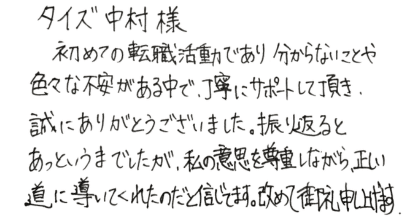 タイズ中村様
初めての転職活動であり分からないことや
色々な不安がある中で、丁寧にサポートして頂き、
誠にありがとうございました。振り返ると
あっというまでしたが、私の意思を尊重しながら、正しい
道に導いてくれたのだと信じてます。改めて御礼申し上げます。